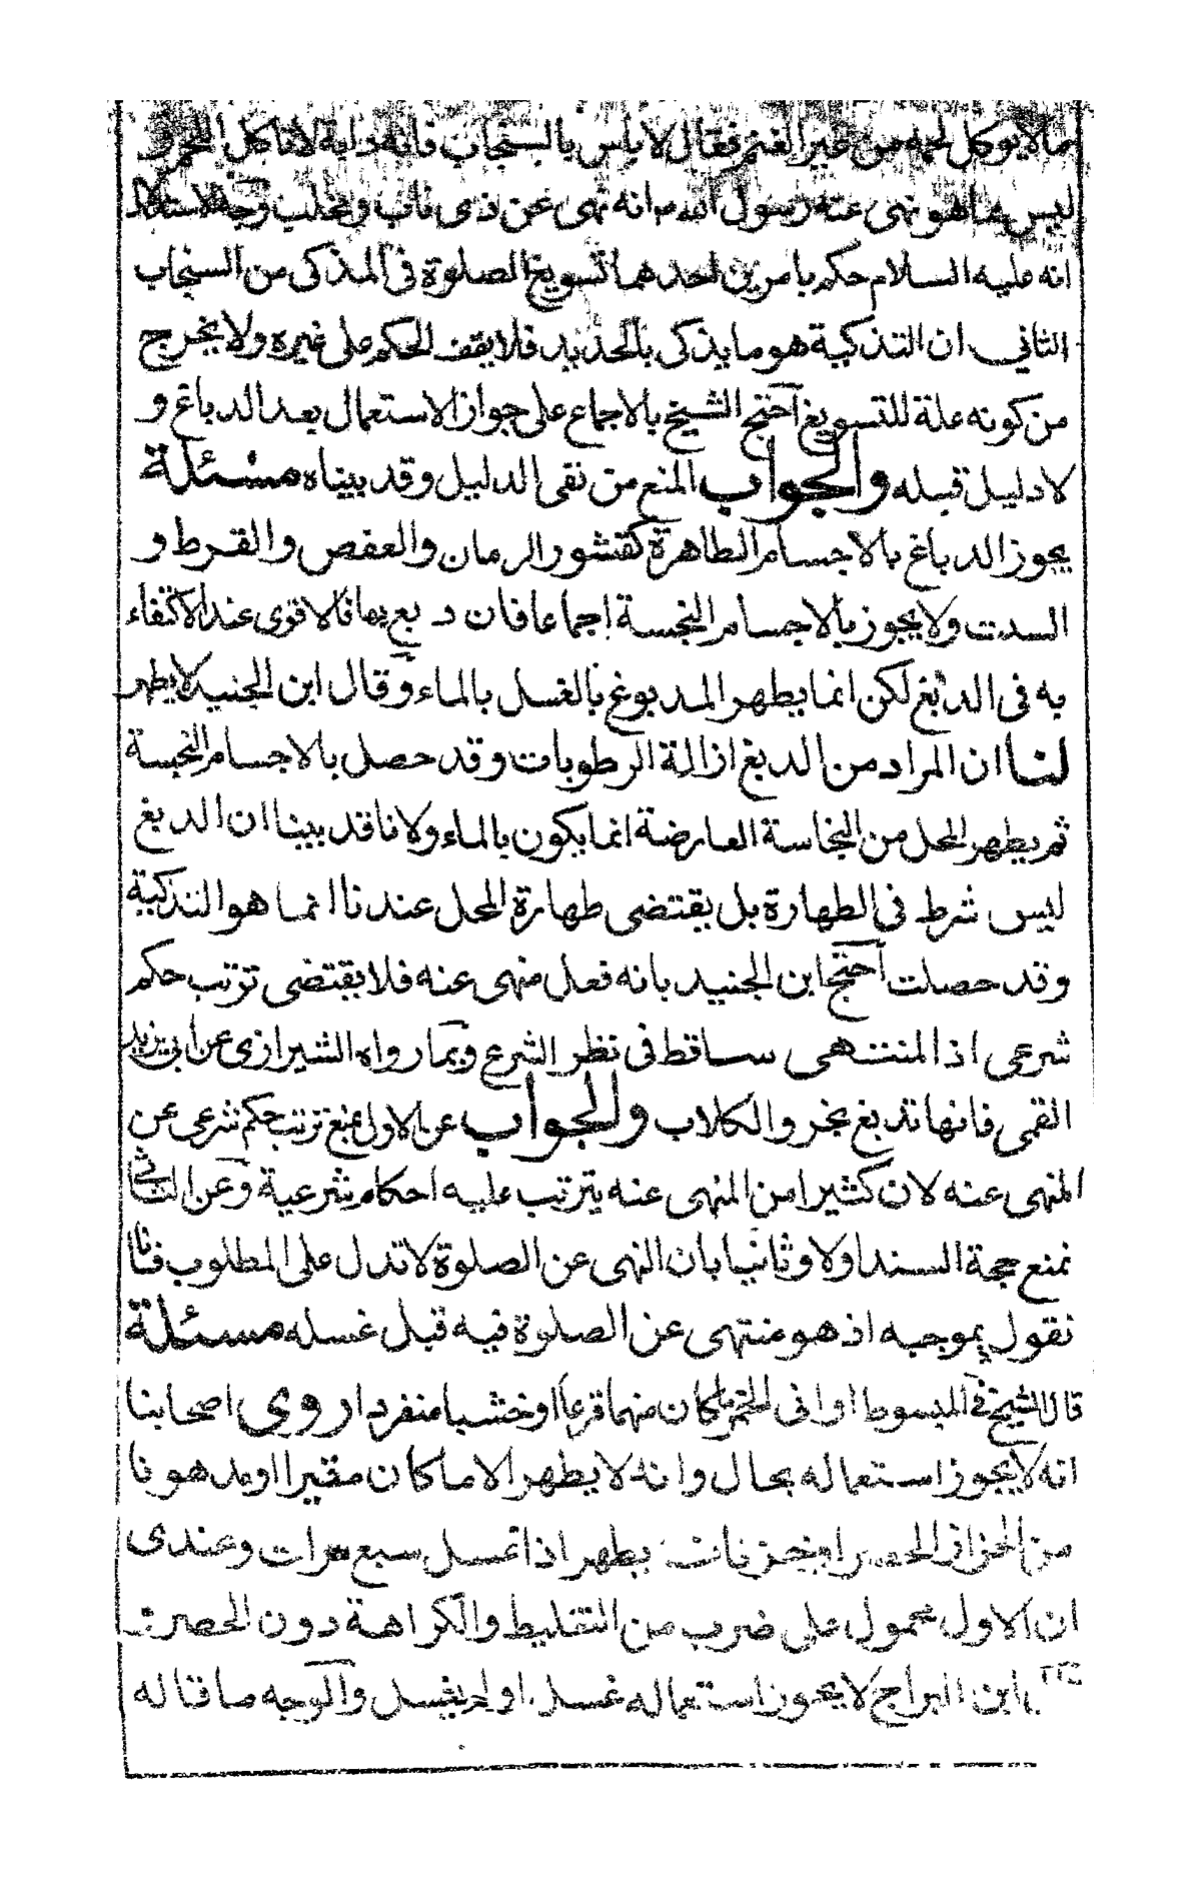 مما لا يوكل لحمه من غير الغنم فقال لا باس بالسنجاب فانه دابة لا تاكل اللحم و
ليس مما هو نهى عنه رسول الله م انه نهى عن ذى ناب ومخلب وجه الاستدلال
انه عليه السلام حكم بامرين احدهما تسويغ الصلوة فى المذكى من السنجاب
الثاني ان التذكية هو ما يذكى بالحديد فلا يقف الحكم على غيره ولا يخرج
من كونه علة للتسويغ احتج الشيخ بالاجماع على جواز الاستعمال بعد الدباغ و
لا دليل قبله والجواب المنع من نفى الدليل وقد بيناه مسئلة
يجوز الدباغ بالاجسام الطاهرة كقشور الرمان والعفص والقرط و
السدت ولا يجوز بالاجسام النجسة اجماعا فان د بع بها فالاقوى عند الاكتفاء
به فى الدبغ لكن انما يطهر المدبوغ بالغسل بالماء وقال ابن الجنيد لا يطهر
لنا ان المراد من الدبغ ازالة الرطوبات وقد حصل بالاجسام النجسة
ثم يطهر المحل من النجاسة العارضة انما يكون بالماء ولانا قد بينا ان الدبغ
ليس شرط فى الطهارة بل يقتضى طهارة المحل عندنا انما هو التذكية
وقد حصلت احتج ابن الجنيد بانه فعل منهى عنه فلا يقتضى ترتب حكم
شرعى اذ المنتهى ساقط فى نظر الشرع وبما رواه الشيرازى عن ابى يزيد
القمى فانها تدبغ بخرو الكلاب والجواب عن الاول بمنع ترتب حكم شرعى عن
المنهى عنه لان كثيرا من المنهى عنه يترتب عليه احكام شرعية وعن الثانى
نمنع حجة السند اولا وثانيا بان النهى عن الصلوة لا تدل على المطلوب فانا
نقول بموجبه اذ هو منتهى عن الصلوة فيه قبل غسله مسئلة
قال الشيخ فى المبسوط اوانى الخمر ما كان منها قرعا او خشبا منفردا روى اصحابنا
انه لا يجوز استعماله بحال وانه لا يطهر الا ما كان مقيرا او مدهونا
من الخزاف الخضر او يطهر اذا غسل سبع مرات وعندى
ان الاول محمول على ضرب من التغليط والكراهة دون الحصر
ابن البراج لا يجوز استعماله غسل او لم يغسل والوجه ما قاله